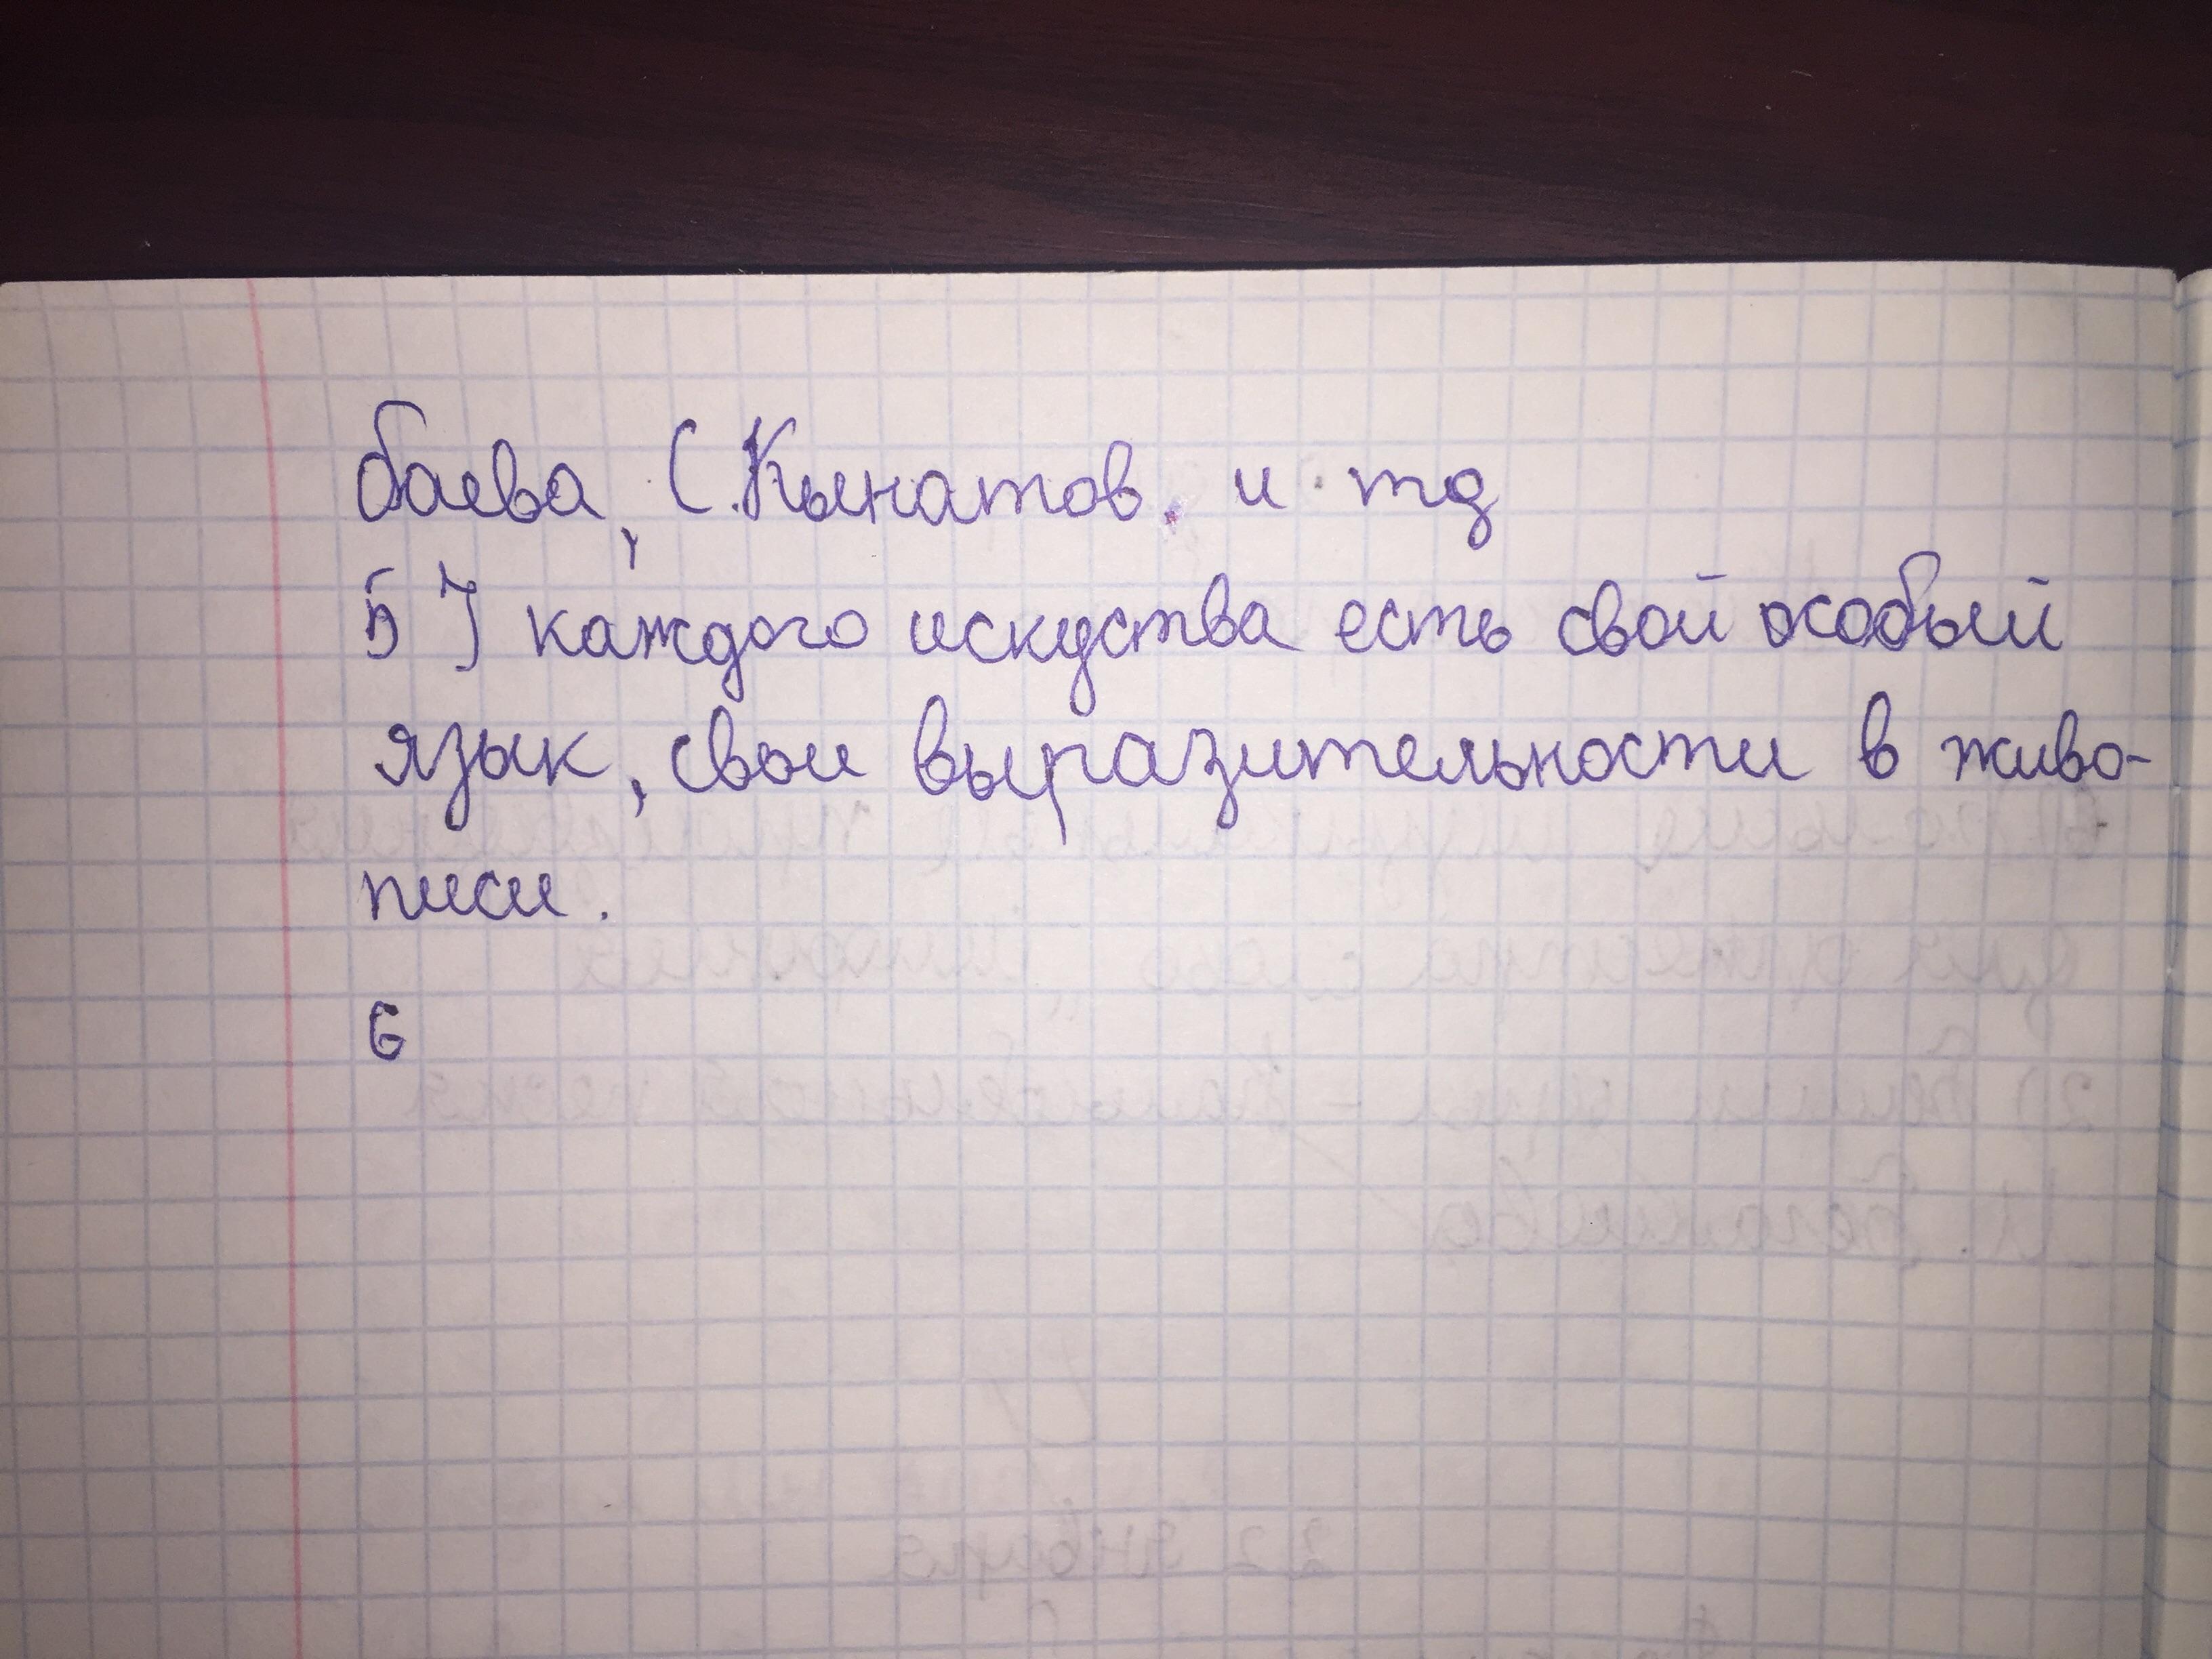 баева, С.Кынатов. и тд
5 У каждого искуства есть свой особый
язык, свои выразительности в живо-
писи.
6